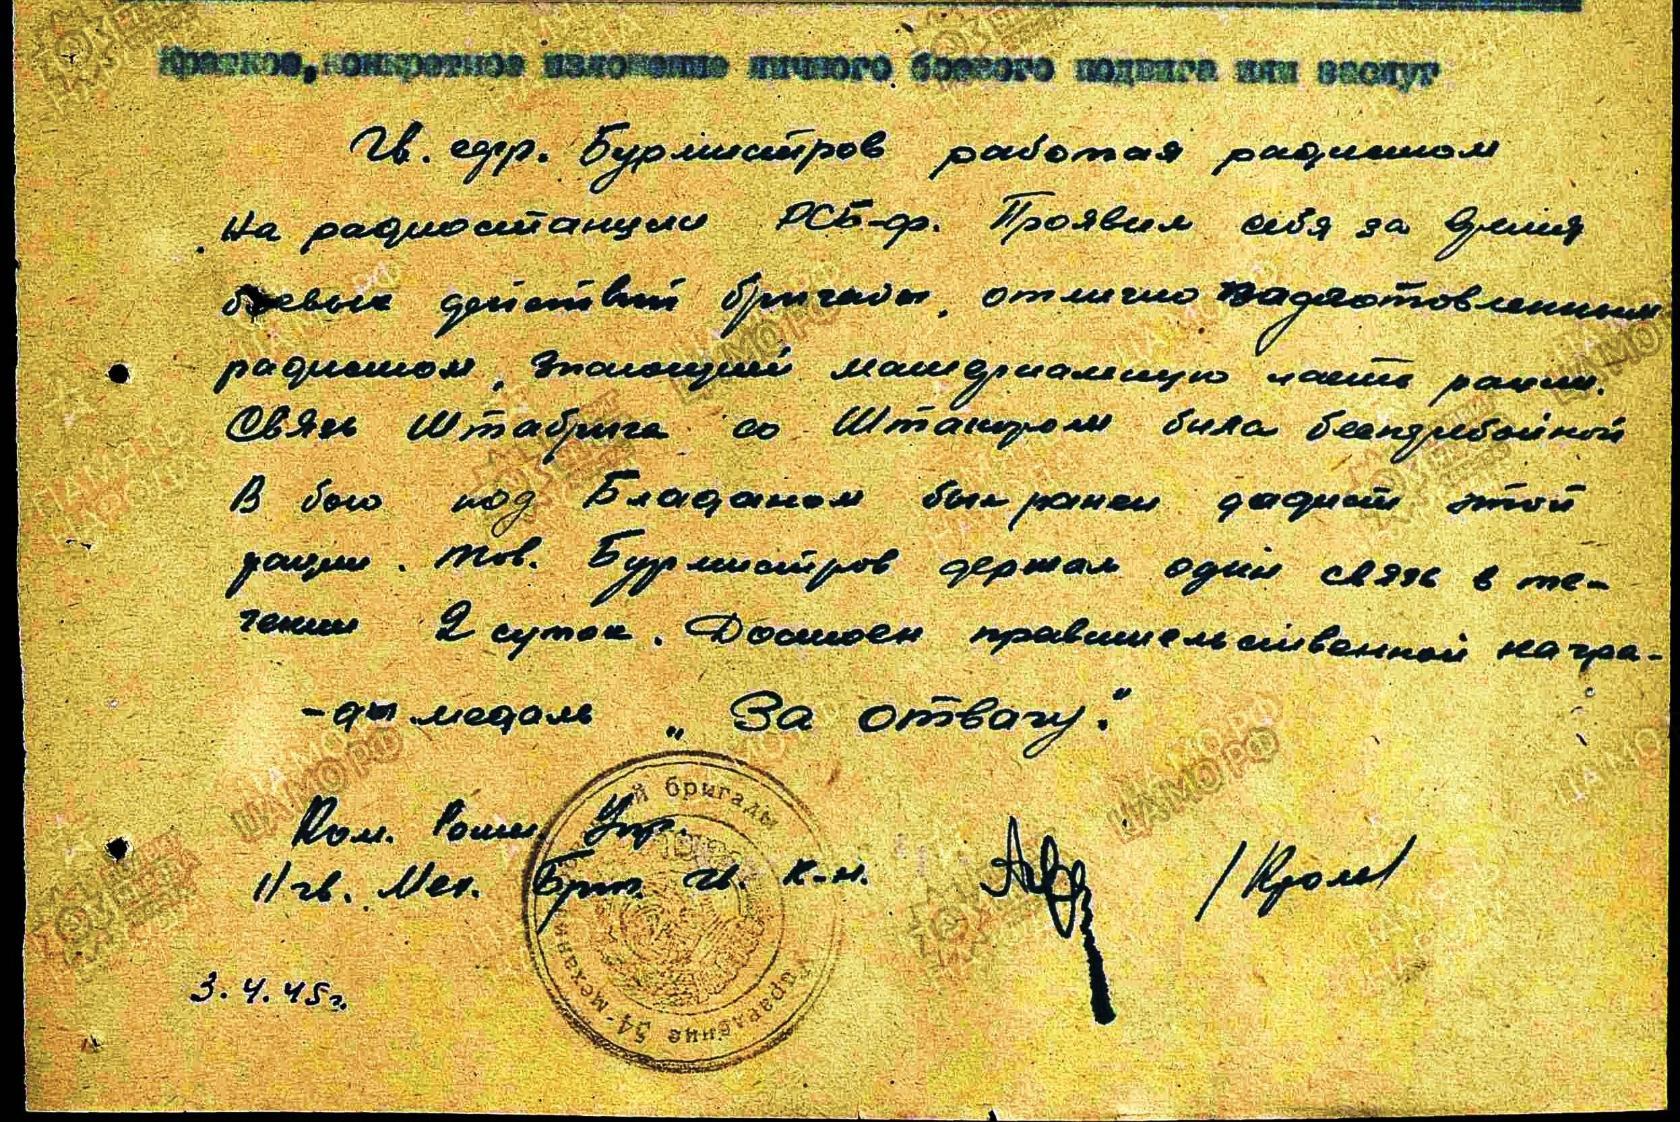 Краткое, конкретное изложение личного боевого подвига или заслуг
Гв. ефр. Бурмистров работая радистом
на радиостанции РСБ-ф. Проявил себя за время
боевых действий бригады, отлично подготовленным
радистом, знающий материальную часть рации.
Связь Штабрига со Штакором была бесперебойной
В бою под Бладаном был ранен радист этой
рации. Тов. Бурмистров держал один связь в те-
чении 2 суток. Достоен правительственной награ-
-ды медаль „За отвагу."
Ком. Роты Упр.
11 гв. Мех. Бриг. гв. к-н. /Кролев/
3.4.45г.
Управление 34-механ ой бригады
ПАМЯТЬ НАРОДА
ЦАМО РФ